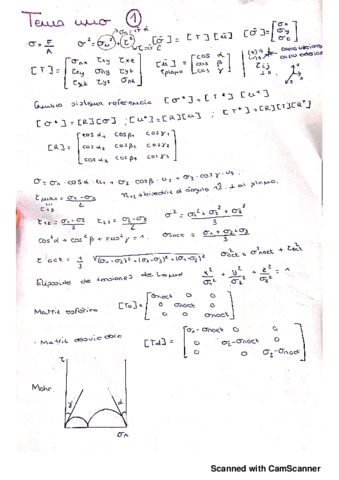 Tema uno 1
σ = F/A σ² = σn² + τ² [σ] = [T] [u] [σ] = [σx σy σz]
[T] = [σnx τxy τxz
τxy σny τyz
τxz τyz σnz] [u] = [cos α
cos β
cos γ]
Cambio sistema referencia [σ*] = [T*] [u*]
[σ*] = [R][σ] ; [u*] = [R][u] ; [T*] = [R][T][Rᵀ]
[R] = [cos α₁ cos β₁ cos γ₁
cos α₂ cos β₂ cos γ₂
cos α₃ cos β₃ cos γ₃]
σ = σ₁ · cos α · u₁ + σ₂ cos β · u₂ + σ₃ · cos γ · u₃
τmax = (σ₁ - σ₃)/2
τ₁₂ = (σ₁ - σ₂)/2 τ₂₃ = (σ₂ - σ₃)/2 σ² = (σ₁² + σ₂² + σ₃²)/3
cos² α + cos² β + cos² γ = 1. σoct = (σ₁ + σ₂ + σ₃)/3
τ oct = 1/3 √((σ₁-σ₂)² + (σ₁-σ₃)² + (σ₂-σ₃)²) σ²oct = σ²noct + τ²oct
Elipsoide de tensiones de Lamé x²/σ₁² + y²/σ₂² + z²/σ₃² = 1
Matriz esférica [To] = [σnoct 0 0
0 σnoct 0
0 0 σnoct]
· Matriz desviadora [Td] = [σ₁-σnoct 0 0
0 σ₂-σnoct 0
0 0 σ₃-σnoct]
Mohr. τ
γ α
σn
Scanned with CamScanner